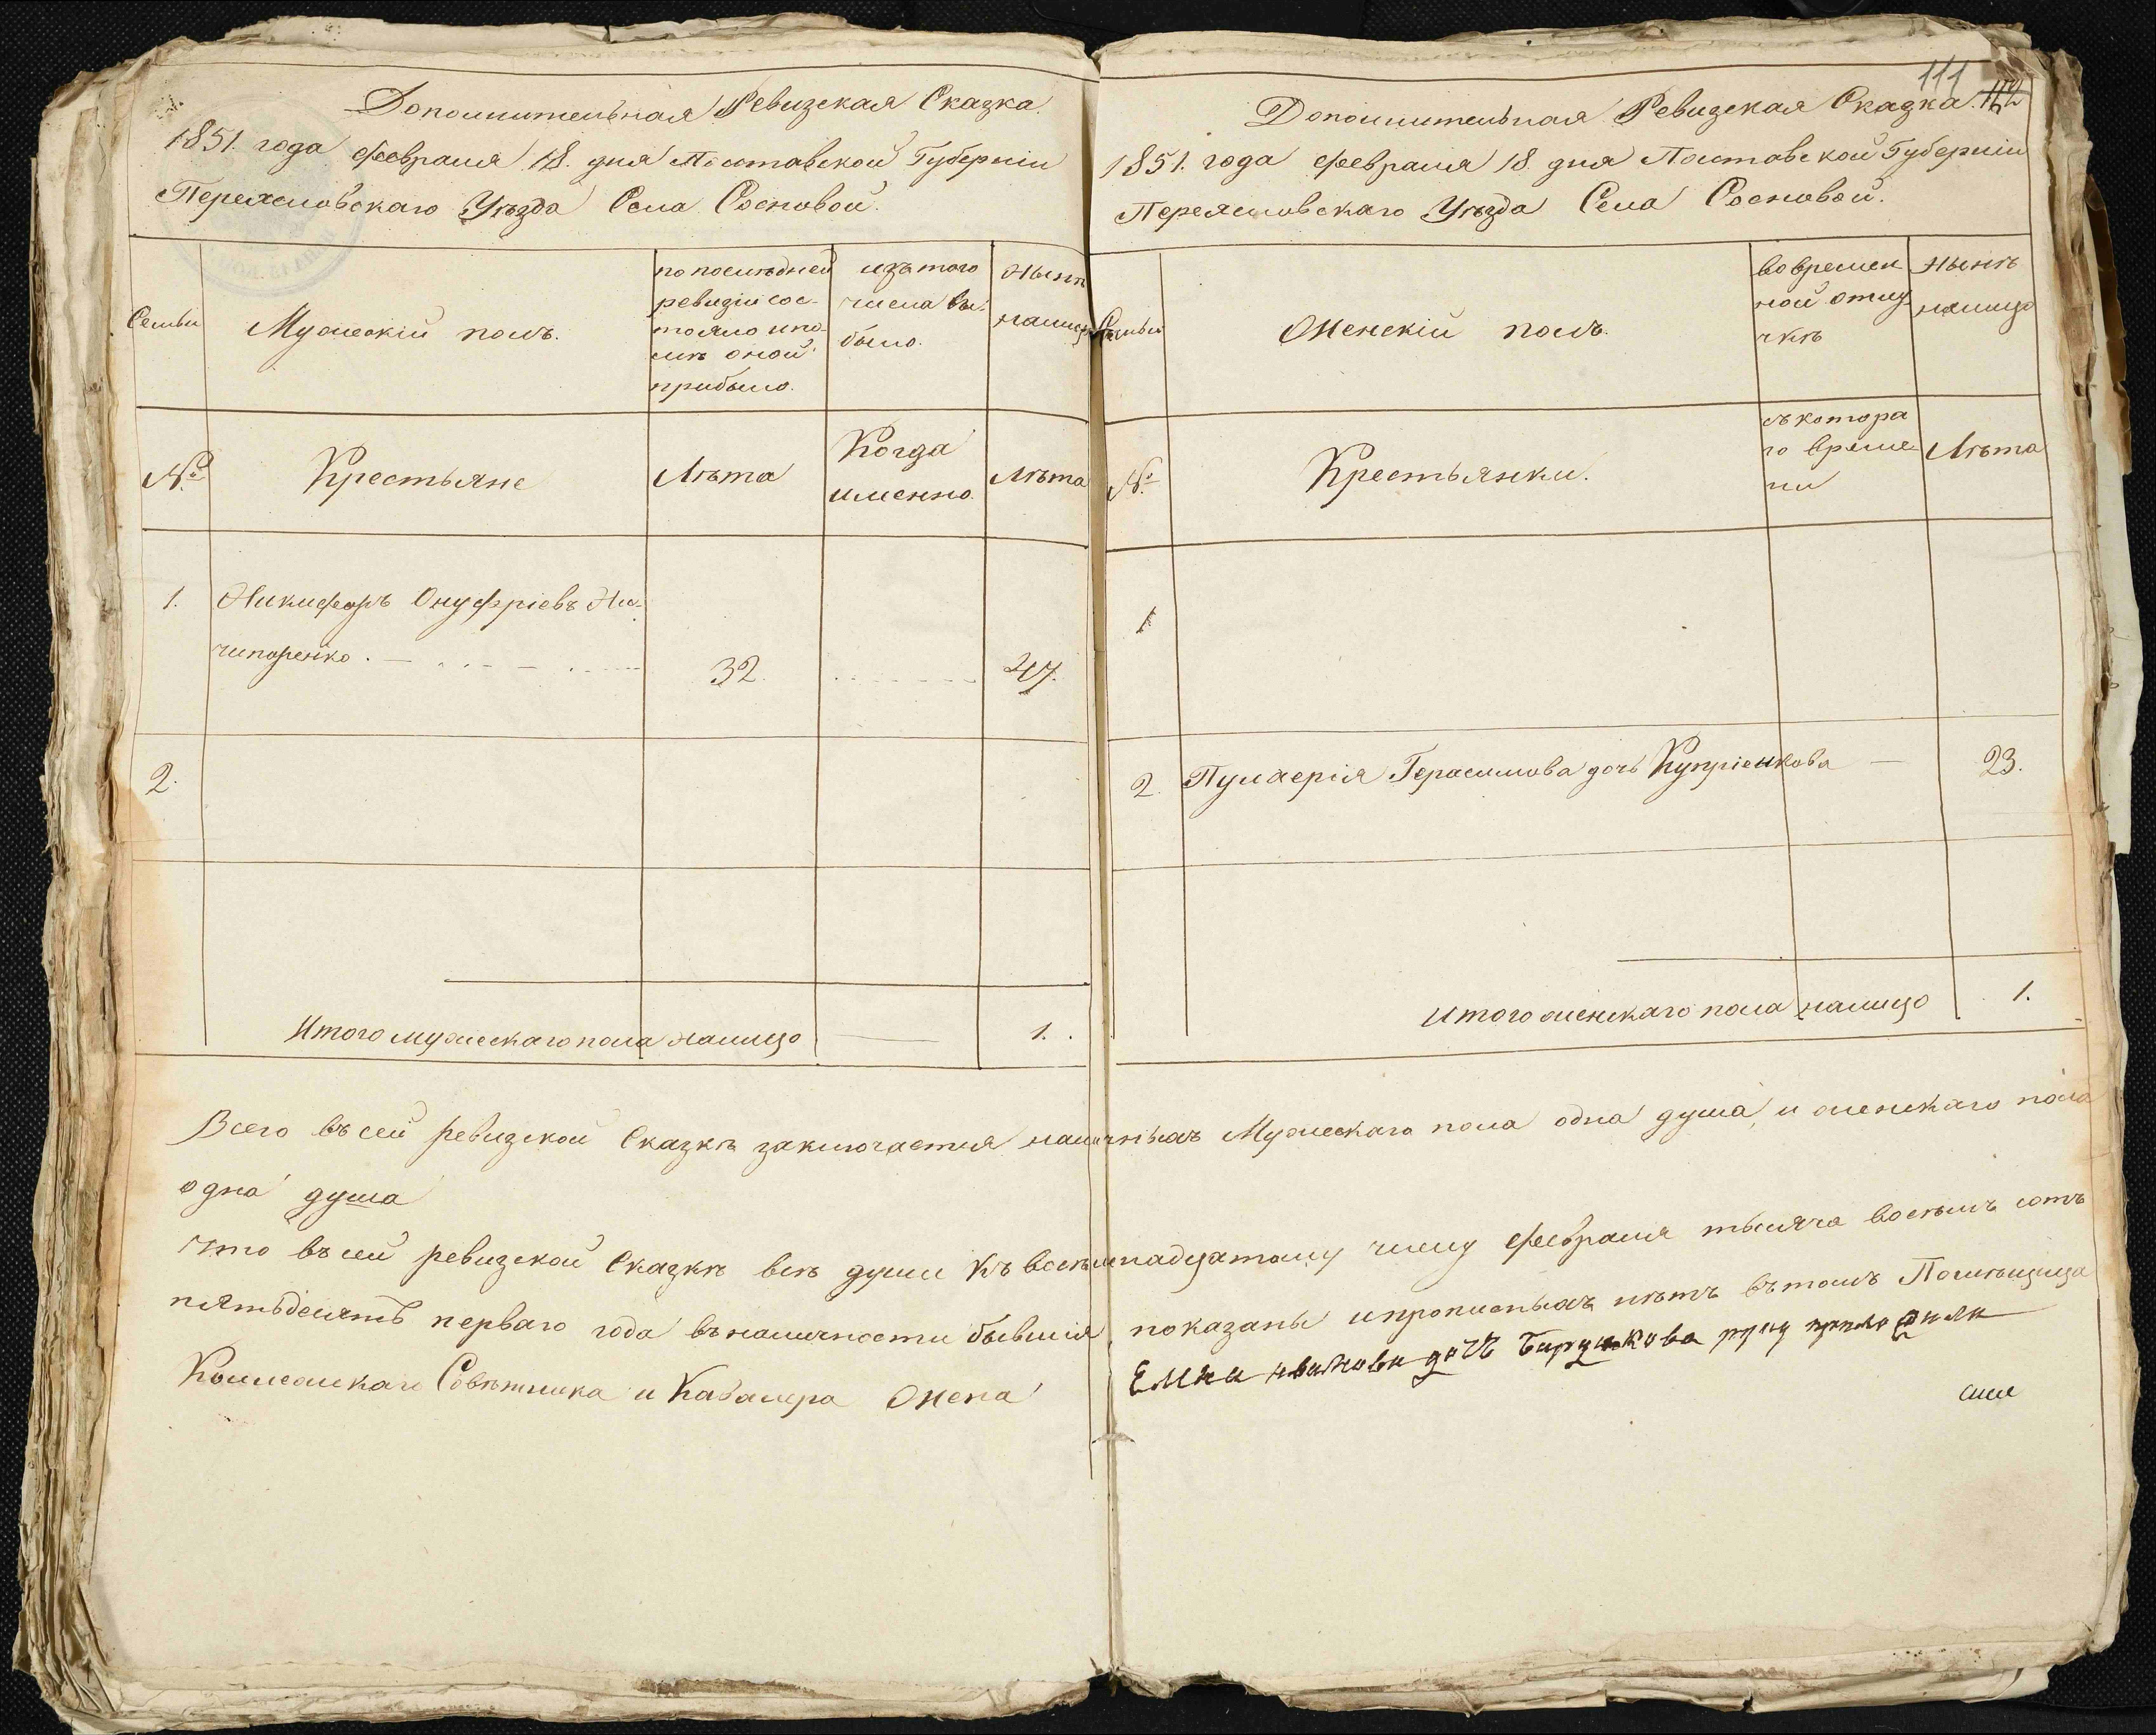 Дополнительная Ревизская Сказка
1851. года февраля 18. дня Полтавской Губерніи
Переяславскаго Уѣзда Села Сосновой.
Семьи
Мужескій полъ.
по послѣдней
ревизіи сос-
тояло и по-
слѣ оной
прибыло.
изъ того
числа вы-
было.
Нынѣ
налицо
№
Крестьяне
Лѣта
Когда
именно.
Лѣта
1. Никифоръ Онуфріевъ Ни-
чипоренко. 32. 47.
2.
Итого мужескаго пола налицо 1.
111
Дополнительная Ревизская Сказка
1851. года февраля 18. дня Полтавской Губерніи
Переяславскаго Уѣзда Села Сосновой.
Семьи
Женскій полъ.
во времен
ной отлу-
чкѣ
Нынѣ
налицо
№
Крестьянки.
съ котора
го време-
ни
Лѣта
1
2. Пулхерія Герасимова дочь Купріенкова 23.
Итого женскаго пола налицо 1.
Всего въ сей ревизской Сказкѣ заключается наличныхъ Мужескаго пола одна душа, и женскаго пола
одна душа
Что въ сей ревизской Сказкѣ всѣ души къ восемьнадцатому числу февраля тысяча восемъ сотъ
пятьдесятъ перваго года въ наличности бывшія, показаны и прописныхъ нѣтъ въ томъ Помѣщица
Коллежскаго Совѣтника и Кавалера Жена дочь руку